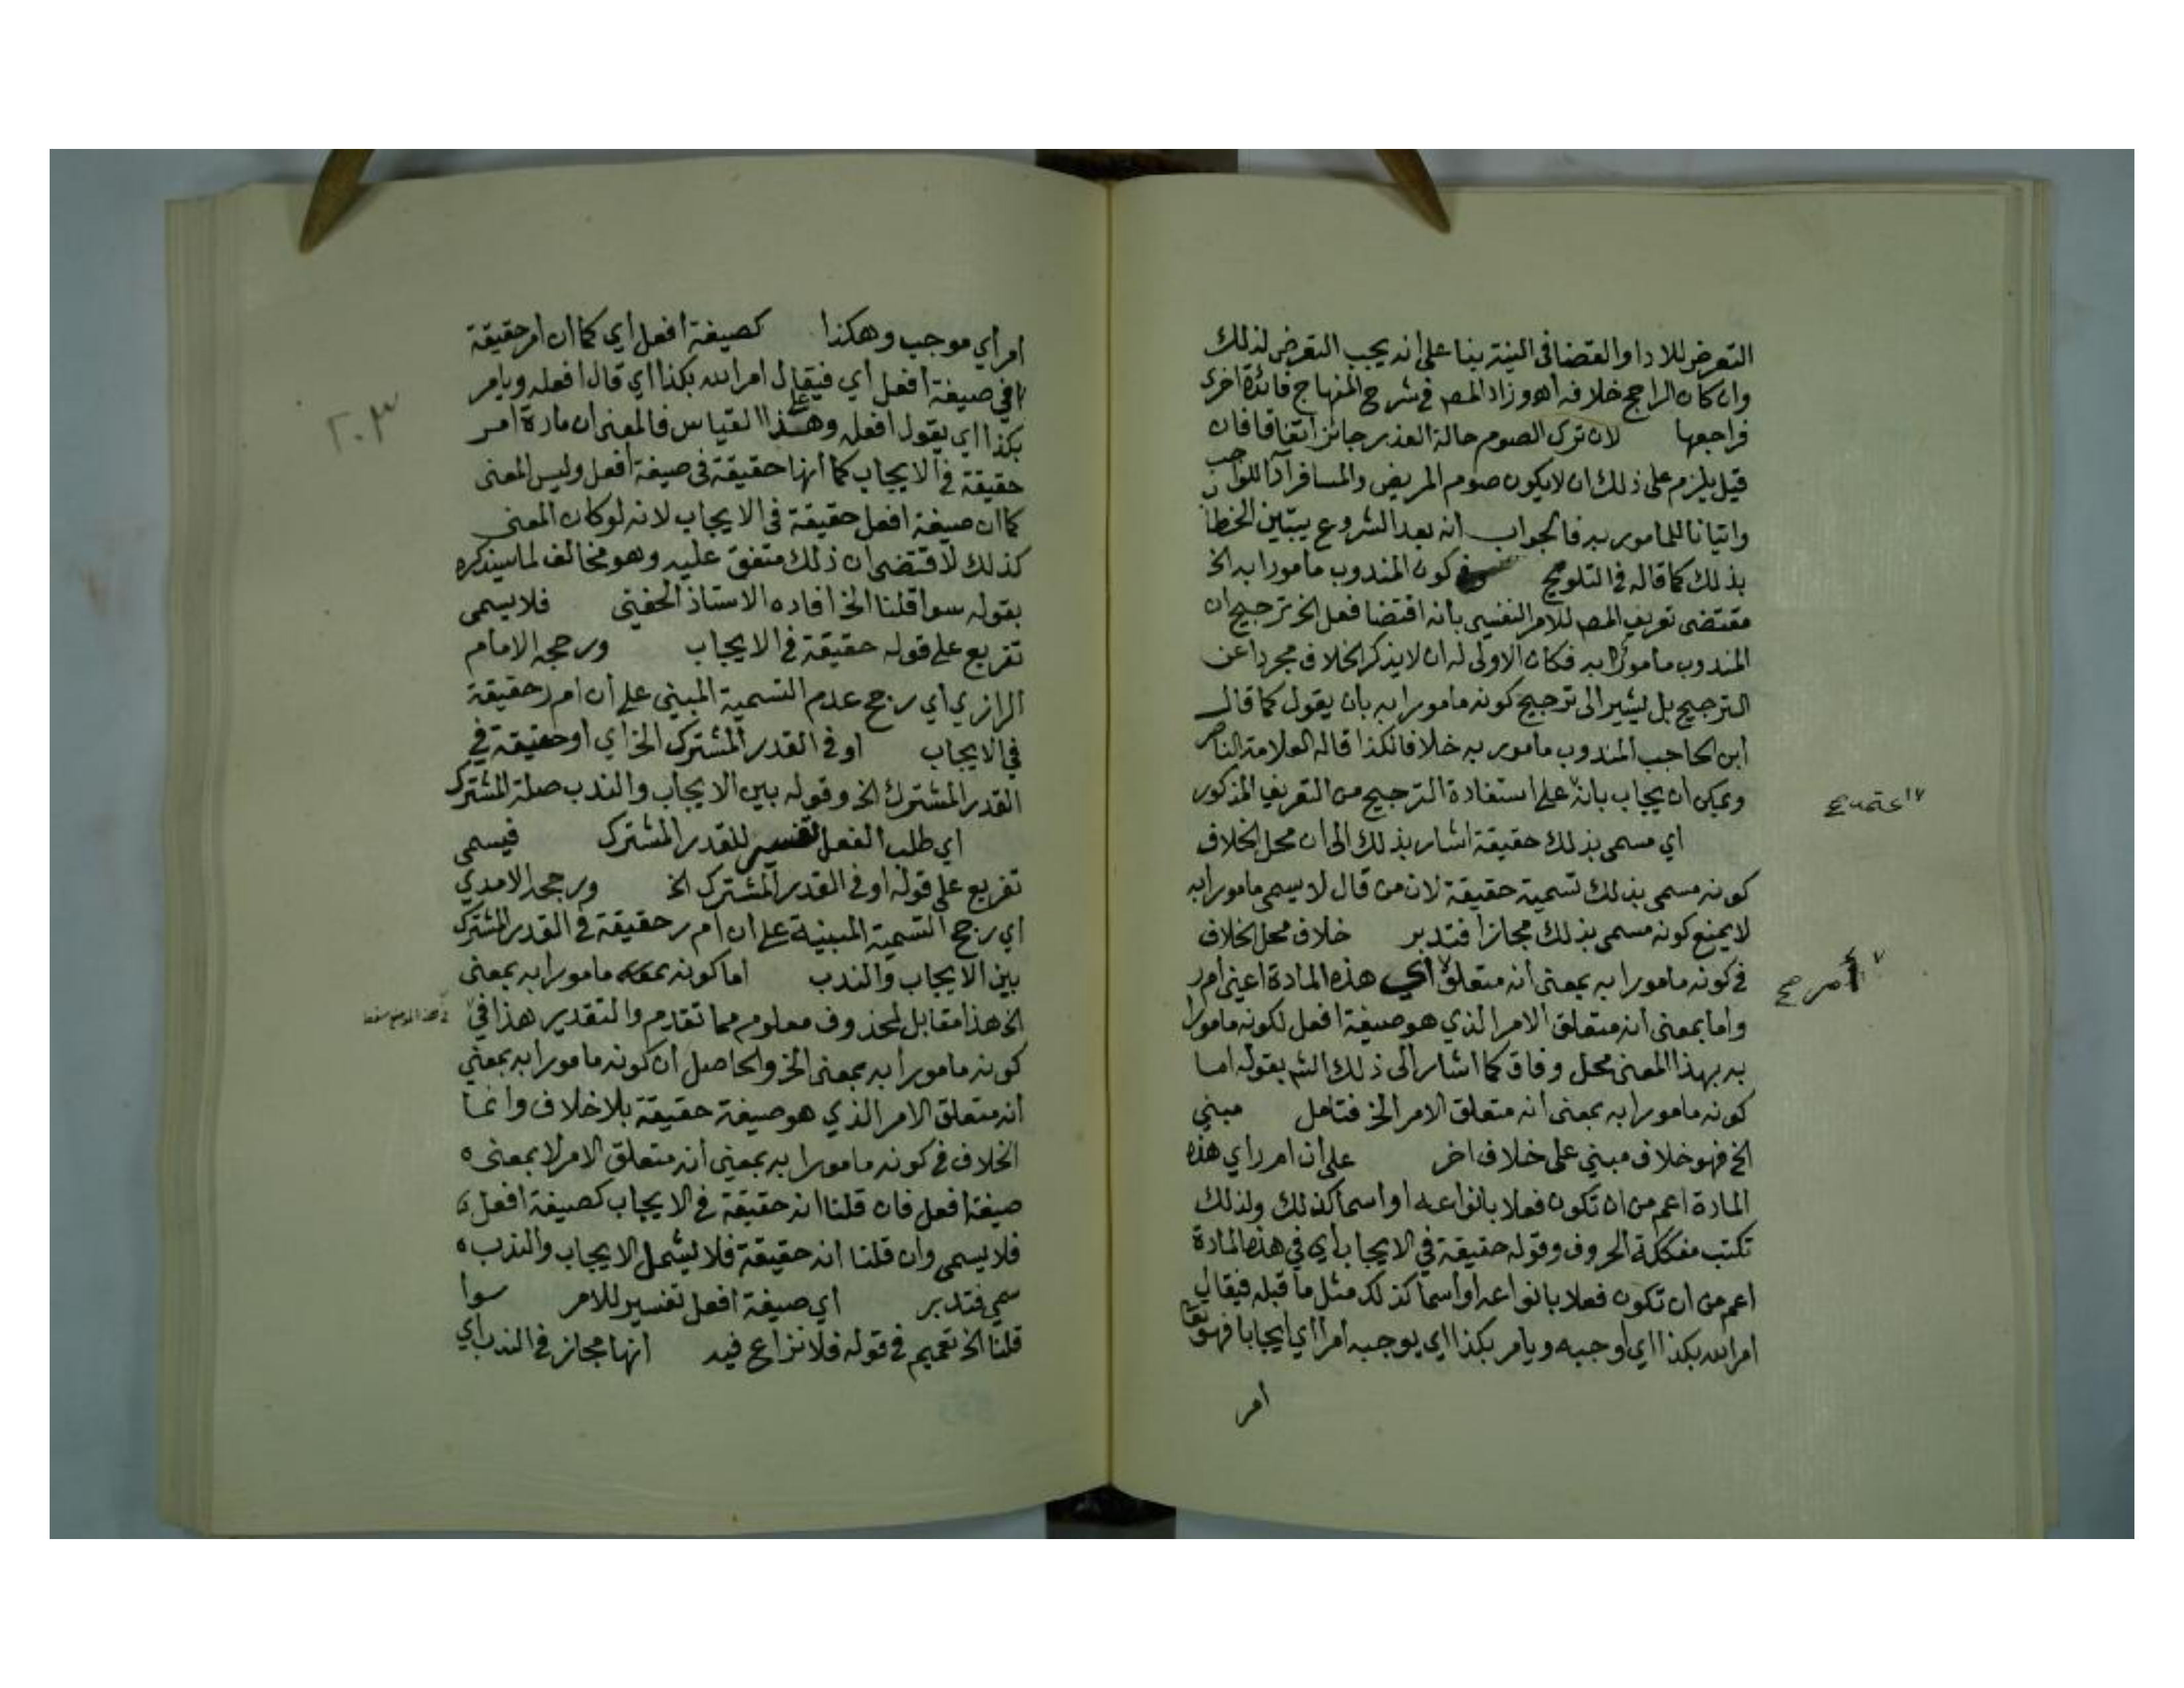 التعرض للادا والقضا فى النية بنا على انه يجب التعرض لذلك
وان كان الراجح خلافه اهو وزاد المص فى شرح المنهاج فائدة اخرى
فراجعها لان ترك الصوم حالة العذر جائز اتفاقا فان
قيل يلزم على ذلك ان لا يكون صوم المريض والمسافر آدا للواجب
واتيانا للمامور به فالجواب انه بعد الشروع يتبين الخطاب
بذلك كما قاله فى التلويح وفى كون المندوب مامورا به الخ
مقتضى تعريف المص للامر النفسى بانه اقتضا فعل الخ ترجيح ان
المندوب مامورا به فكان الاولى له ان لا يذكر الخلاف مجردا عن
الترجيح بل يشير الى ترجيح كونه مامورا به بان يقول كما قال
ابن الحاجب المندوب مامور به خلافا لكذا قاله العلامة الناصر
ويمكن ان يجاب بانه على استفادة الترجيح من التعريف المذكور
اعتمد صح
اي مسمى بذلك حقيقة اشار بذلك الى ان محل الخلاف
كونه مسمى بذلك تسمية حقيقة لان من قال لا يسمى مامورا به
لا يمنع كونه مسمى بذلك مجازا فتدبر خلاف محل الخلاف
فى كونه مامورا به بمعنى انه متعلق أي هذه المادة اعنى أم ر
أمر صح
واما بمعنى انه متعلق الامر الذي هو صيغة افعل لكونه مامورا
به بهذا المعنى محل وفاق كما اشار الى ذلك الش بقوله اما
كونه مامورا به بمعنى انه متعلق الامر الخ فتامل مبني
الخ فهو خلاف مبني على خلاف اخر على أن ام ر اي هذه
المادة اعم من ان تكون فعلا بانواعه او اسما كذلك ولذلك
تكتب مفككة الحروف وقوله حقيقة في الايجاب أي في هذه المادة
اعم من ان تكون فعلا بانواعه او اسما كذلك مثل ما قبله فيقال
امر الله بكذا اي اوجبه ويامر بكذا اي يوجبه امرا اي ايجابا فهو تعالى
أمر
٢٠٣
امر أي موجب وهكذا كصيغة افعل أي كما ان ام ر حقيقة
فى صيغة افعل أي فيقال امر الله بكذا اي قال افعله ويامر
بكذا اي يقول افعله وعلى هذا القياس فالمعنى ان مادة امر
حقيقة في الايجاب كما انها حقيقة فى صيغة افعل وليس المعنى
كما ان صيغة افعل حقيقة فى الايجاب لانه لو كان المعنى
كذلك لاقتضى ان ذلك متفق عليه وهو مخالف لما سيذكره
بقوله سوا قلنا الخ افاده الاستاذ الحفني فلا يسمى
تفريع على قوله حقيقة في الايجاب ورجحه الامام
الرازي أي رجح عدم التسمية المبني على أن ام ر حقيقة
في الايجاب او فى القدر المشترك الخ أي أو حقيقة في
القدر المشترك الخ وقوله بين الايجاب والندب صلة المشترك
اي طلب الفعل تفسير للقدر المشترك فيسمى
تفريع على قوله او فى القدر المشترك الخ ورجحه الامدي
اي رجح التسمية المبنية على ان ام ر حقيقة في القدر المشترك
بين الايجاب والندب اما كونه مامورا به بمعنى
الخ هذا مقابل لمحذوف معلوم مما تقدم والتقدير هذا في
كونه مامورا به بمعنى الخ والحاصل ان كونه مامورا به بمعني
انه متعلق الامر الذي هو صيغة حقيقة بلا خلاف وانما
الخلاف فى كونه مامورا به بمعنى أنه متعلق الامر لا بمعنى
صيغة افعل فان قلنا انه حقيقة في الايجاب كصيغة افعل
فلا يسمى وان قلنا انه حقيقة فلا يشمل الايجاب والندب
سمي فتدبر أي صيغة افعل تفسير للامر سوا
قلنا الخ تعميم فى قوله فلا نزاع فيه انها مجاز فى الندب أي